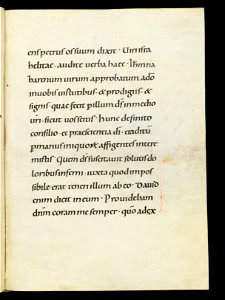 ens petrus ossium dixit · Viri isra
helitae · audite verba haec · Ihm na
zarenum virum approbatum a do
in uobis uirtutibus & prodigiis &
signis quae fecit p illum ds in medio
uri · sicut uos scitis · hunc definito
consilio · et praescientia di · traditu
p manus iniquor affigentes intere
mistis · Quem ds suscitauit solutis do
loribus inferni · iuxta quod impos
sibile erat teneri illum ab eo · Dauid
enim dicit in eum · Prouidebam
dnm coram me semper · qm a dex